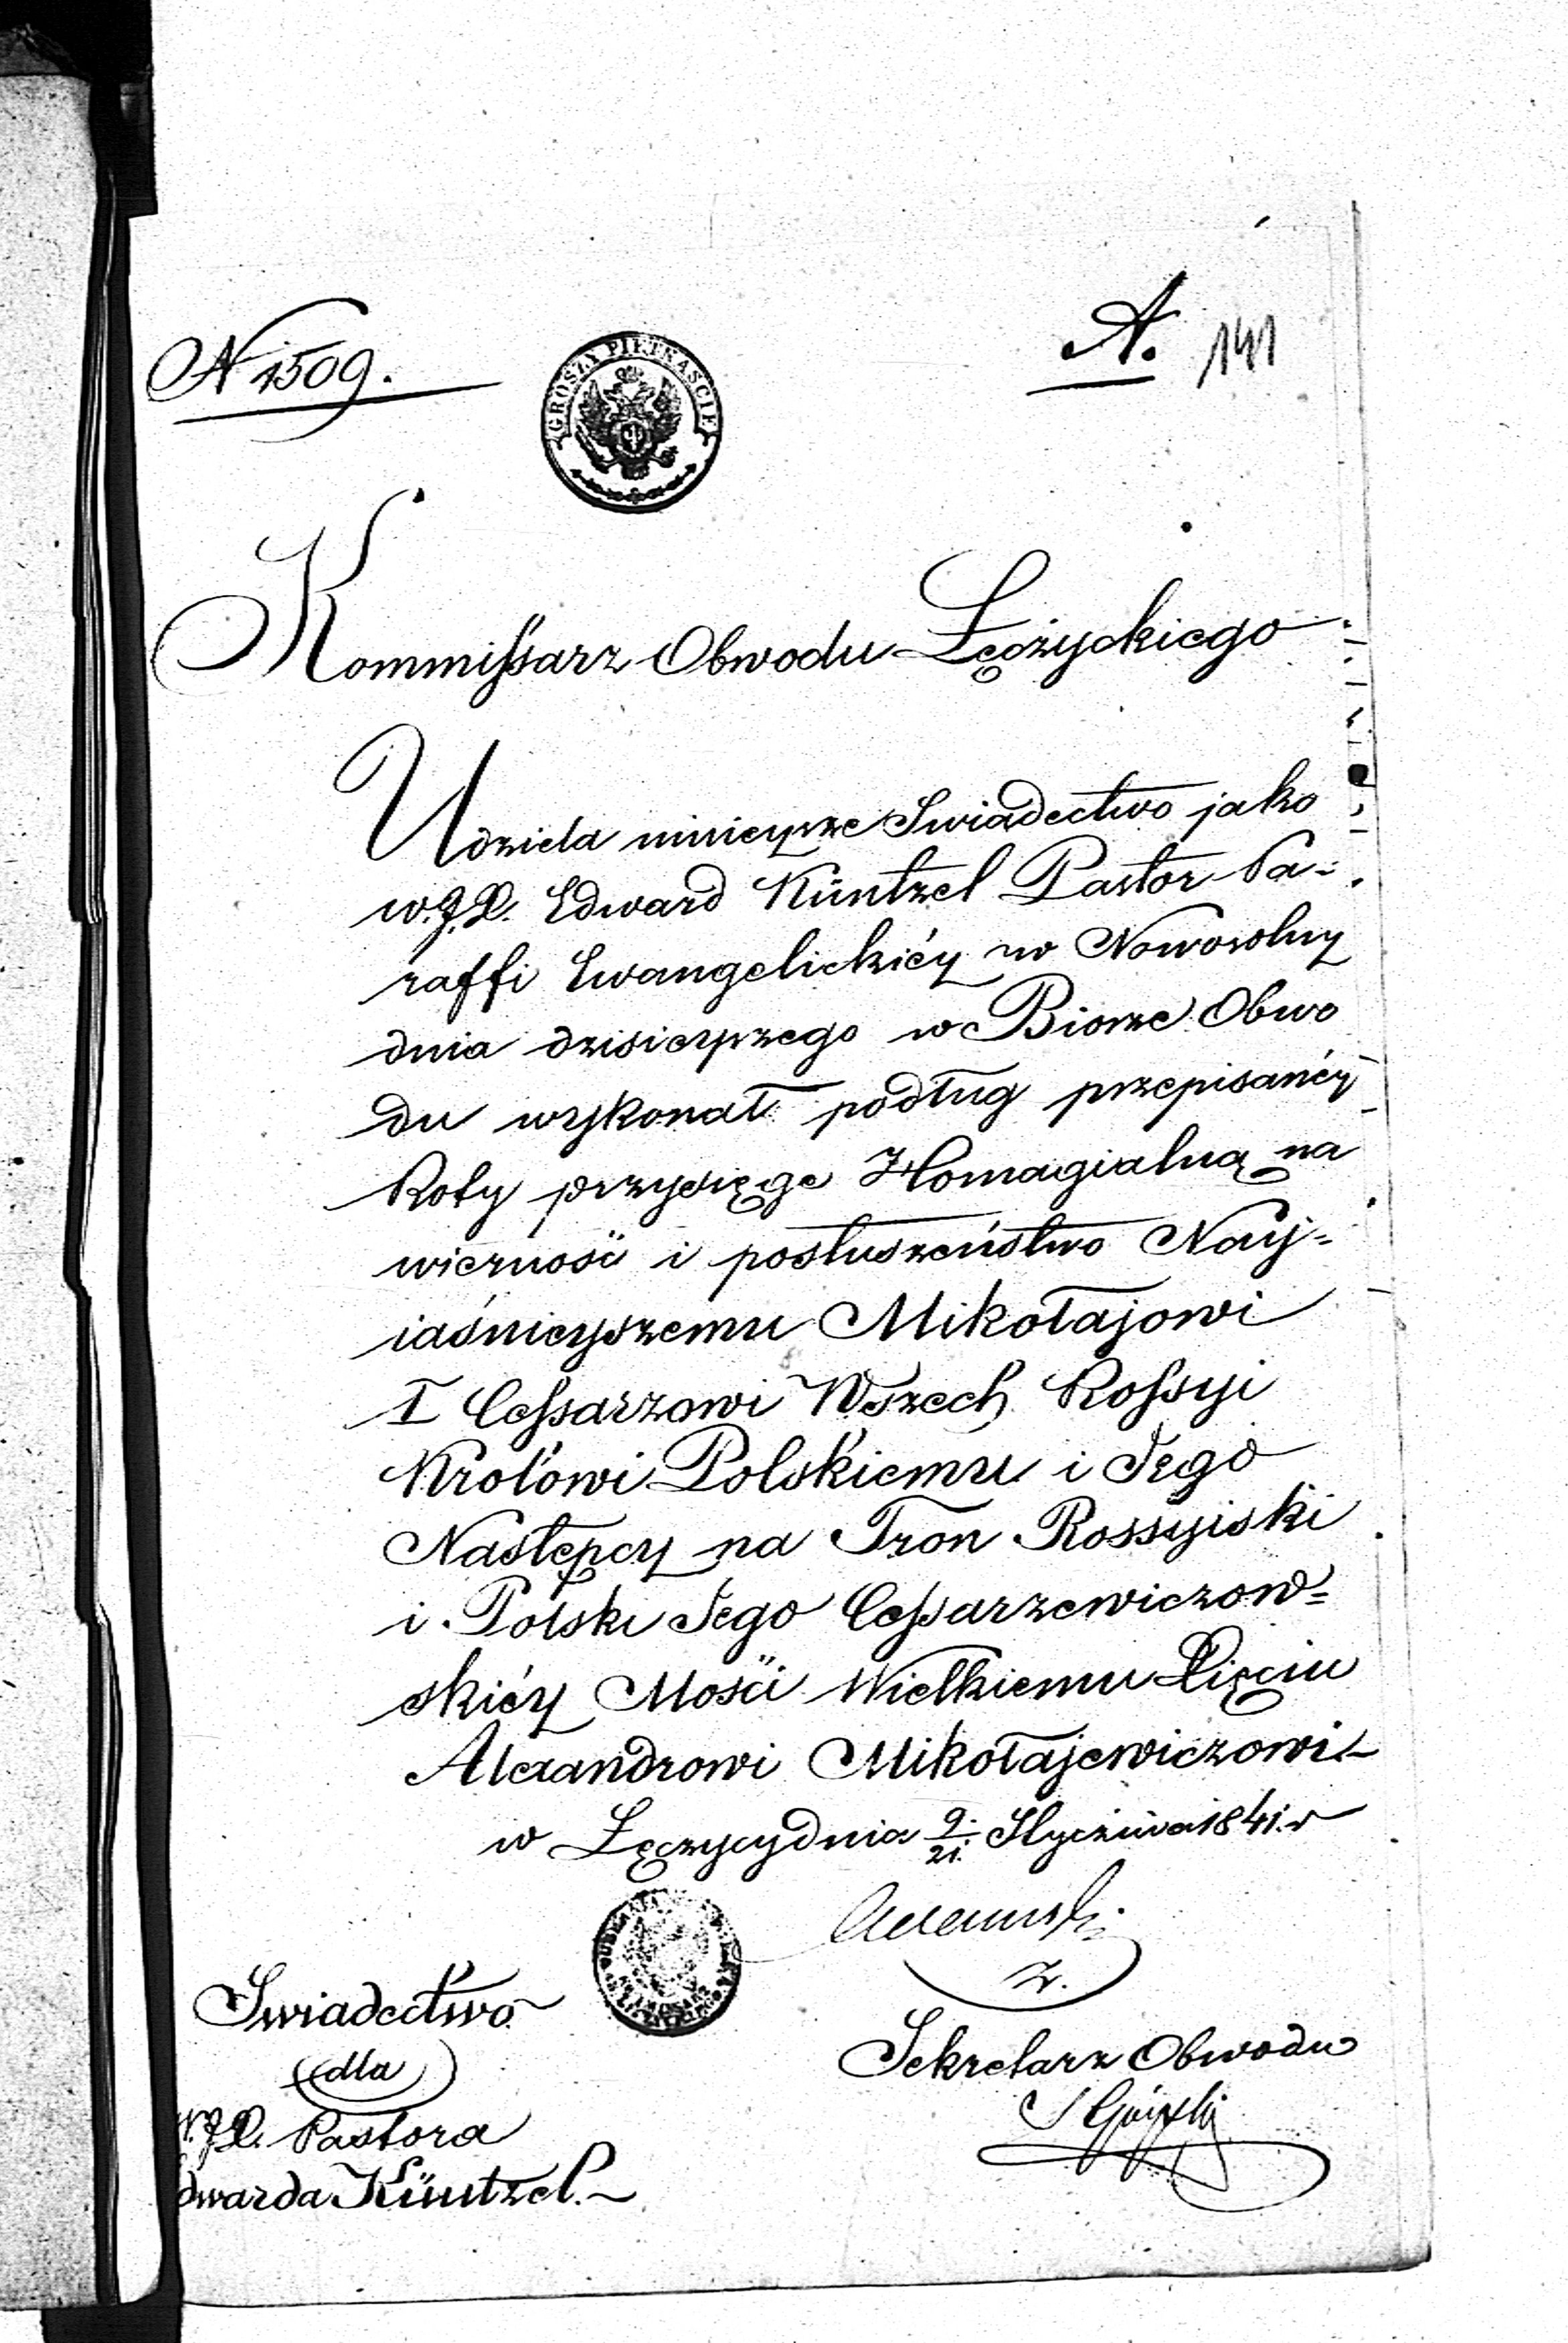 N 1509.
A. 141
GROSZY PIĘTNAŚCIE
Kommissarz Obwodu Łęczyckiego
Udziela ninieysze Swiadectwo jako
W.J.X. Edward Küntzel Pastor Pa=
raffi Ewangelickiéy w Nowosolny
dnia dzisieyszego w Biorze Obwo
du wykonał podług przepisanéy
Roty przysięge Homagialną na
wierność i posłuszeństwo Nay=
iaśnieyszemu Mikołajowi
I Cessarzowi Wszech Rossyi
Krolowi Polskiemu i Jego
Następcy na Tron Rossyiski
i Polski Jego Cessarzewiczow=
skiéy Mości Wielkiemu Xięciu
Alexandrowi Mikołajewiczowi
w Łęczycy dnia 9/21 Stycznia 1841 r
Swiadectwo
dla
W.J.X. Pastora
dwarda Küntzel.
Sekretarz Obwodu